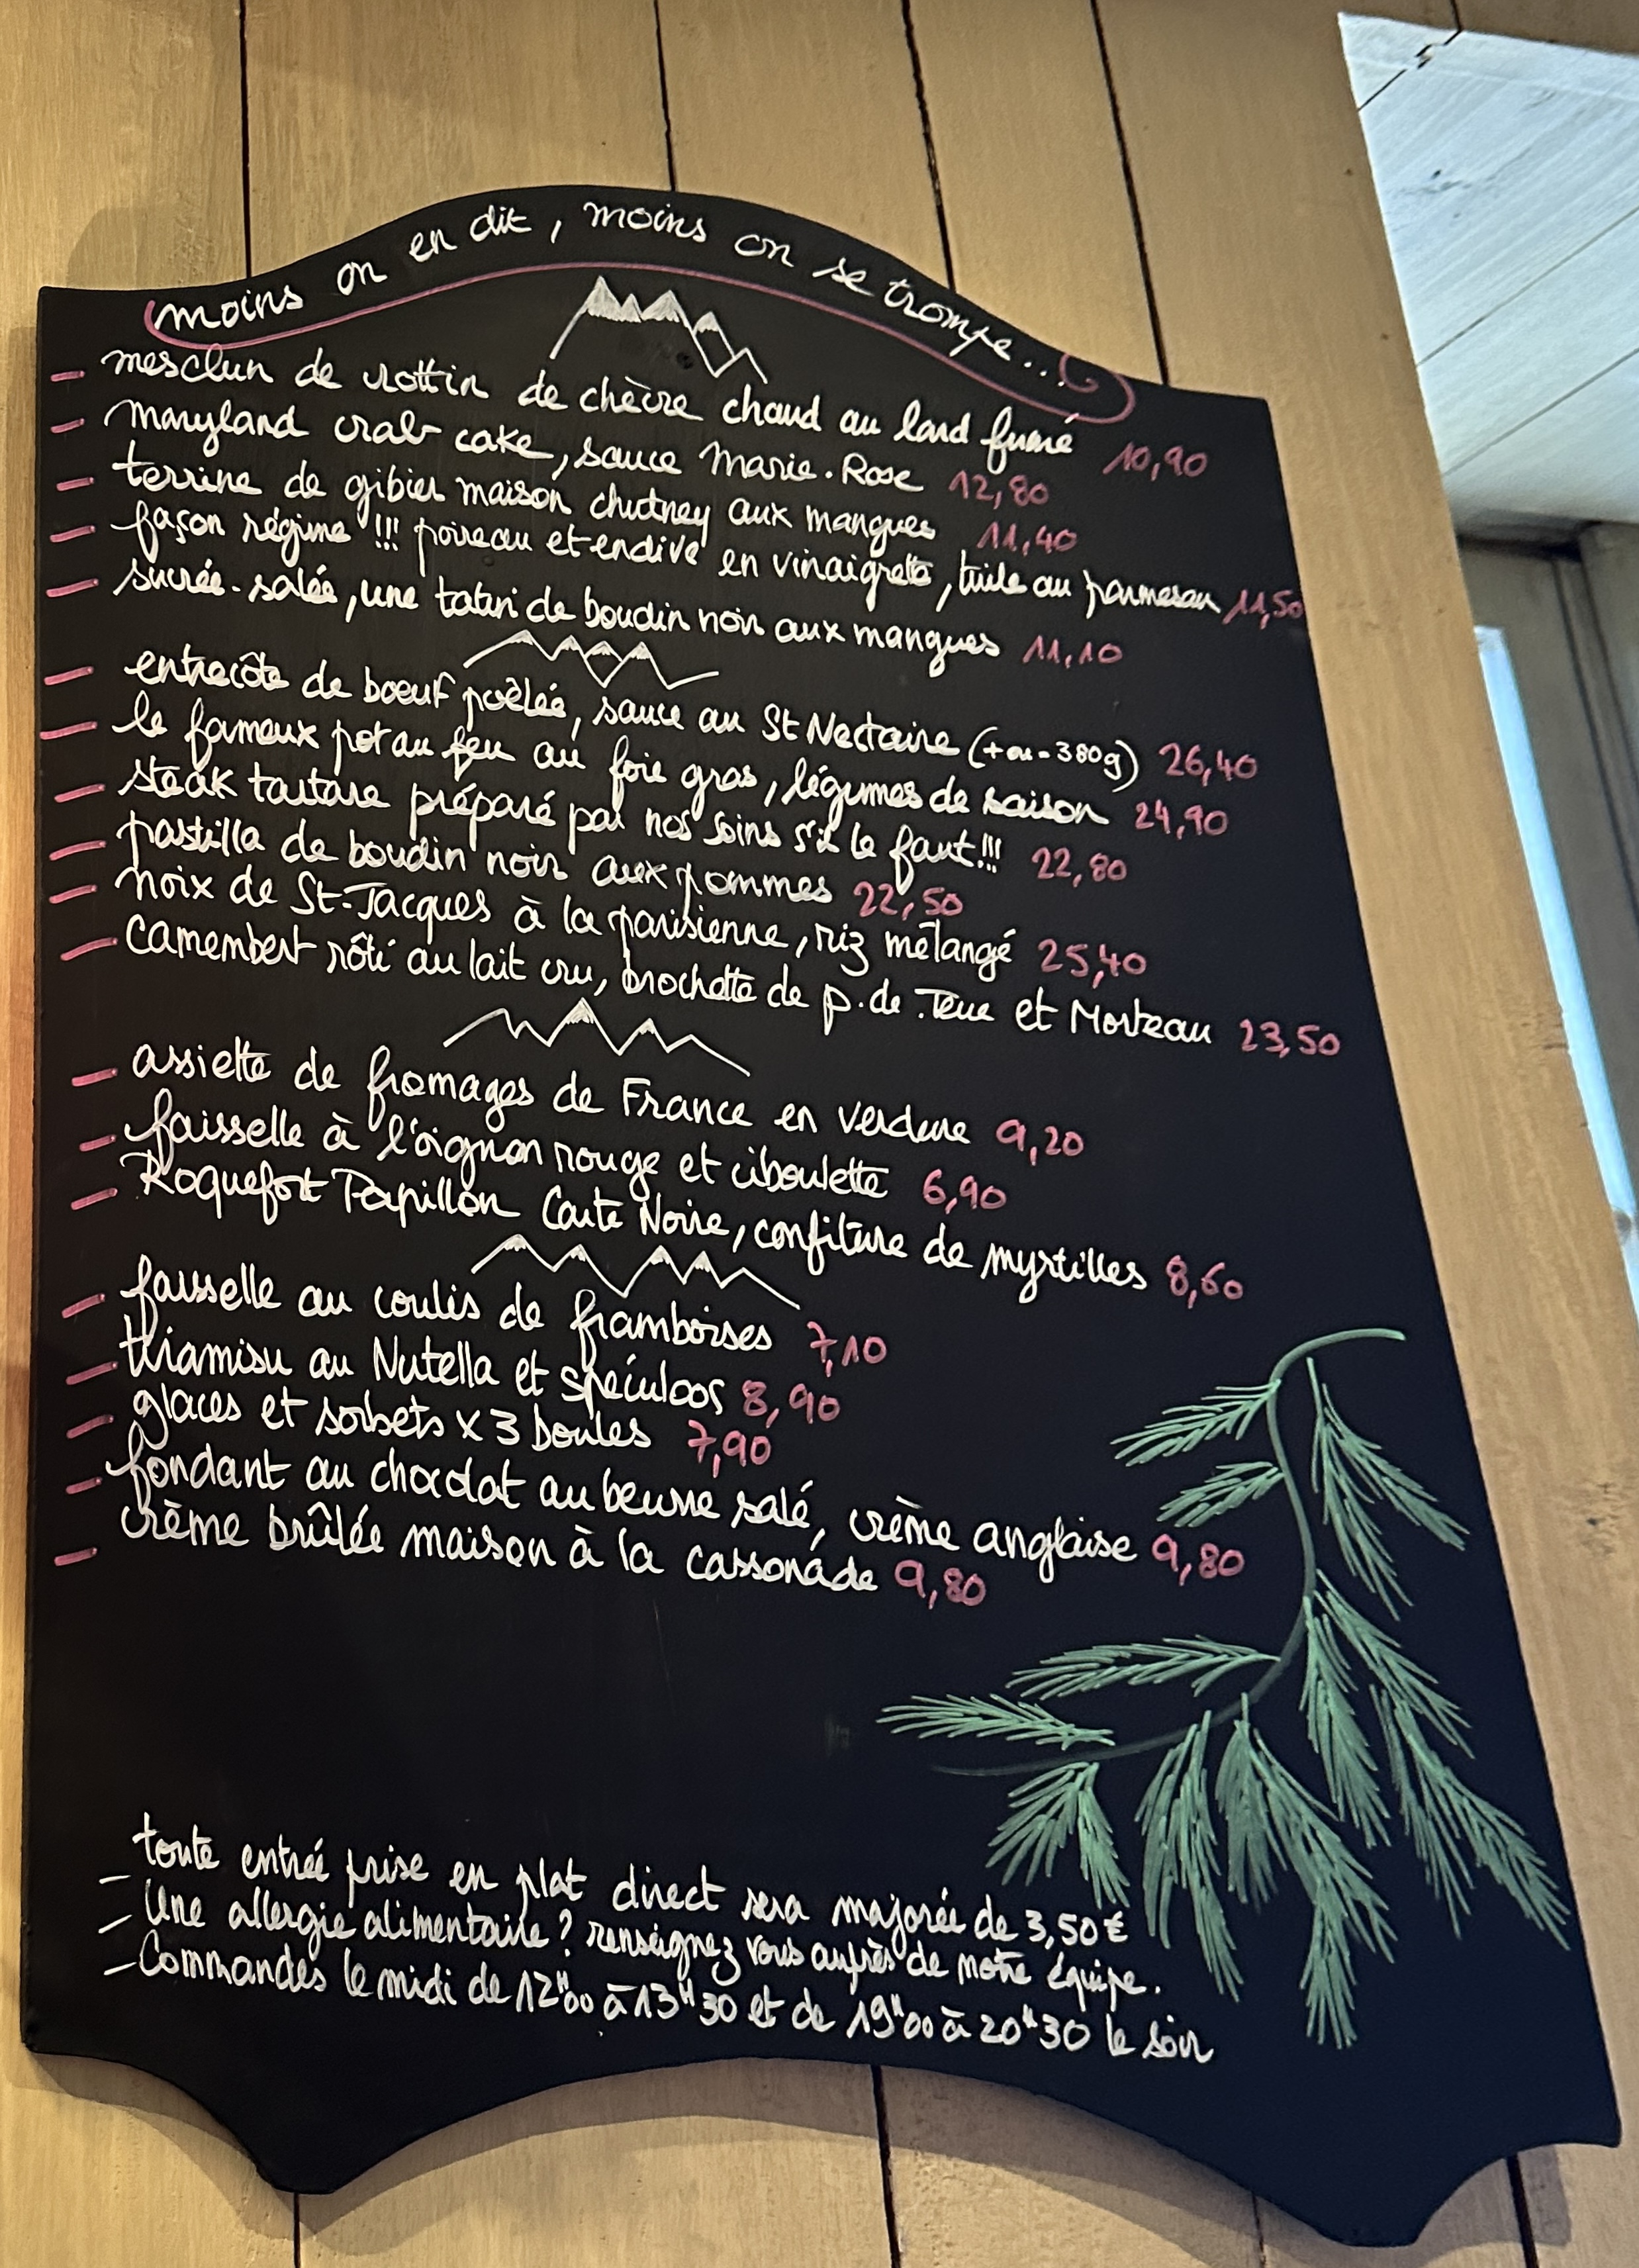 moins on en dit, moins on se trompe...
- mesclun de crottin de chèvre chaud au lard fumé 10,90
- maryland crab cake, sauce Marie.Rose 12,80
- terrine de gibier maison chutney aux mangues 11,40
- façon régime !!! poireau et endive en vinaigrette, tuile au parmesan 11,50
- sucrée-salée, une tatin de boudin noir aux mangues 11,10
- entrecôte de boeuf poêlée, sauce au St Nectaire (+ou-380g) 26,40
- le fameux pot au feu au foie gras, légumes de saison 24,90
- steak tartare préparé par nos soins s'il le faut!!! 22,80
- pastilla de boudin noir aux pommes 22,50
- noix de St-Jacques à la parisienne, riz mélangé 25,40
- camembert rôti au lait cru, brochette de p.de.Terre et Morteau 23,50
- assiette de fromages de France en verdure 9,20
- faisselle à l'oignon rouge et ciboulette 6,90
- Roquefort Papillon Carte Noire, confiture de myrtilles 8,60
- faisselle au coulis de framboises 7,10
- tiramisu au Nutella et spéculoos 8,90
- glaces et sorbets x 3 boules 7,90
- fondant au chocolat au beurre salé, crème anglaise 9,80
- crème brûlée maison à la cassonade 9,80
- toute entrée prise en plat direct sera majorée de 3,50€
- Une allergie alimentaire? renseignez vous auprès de notre équipe.
- Commandes le midi de 12H00 à 13H30 et de 19H00 à 20H30 le soir